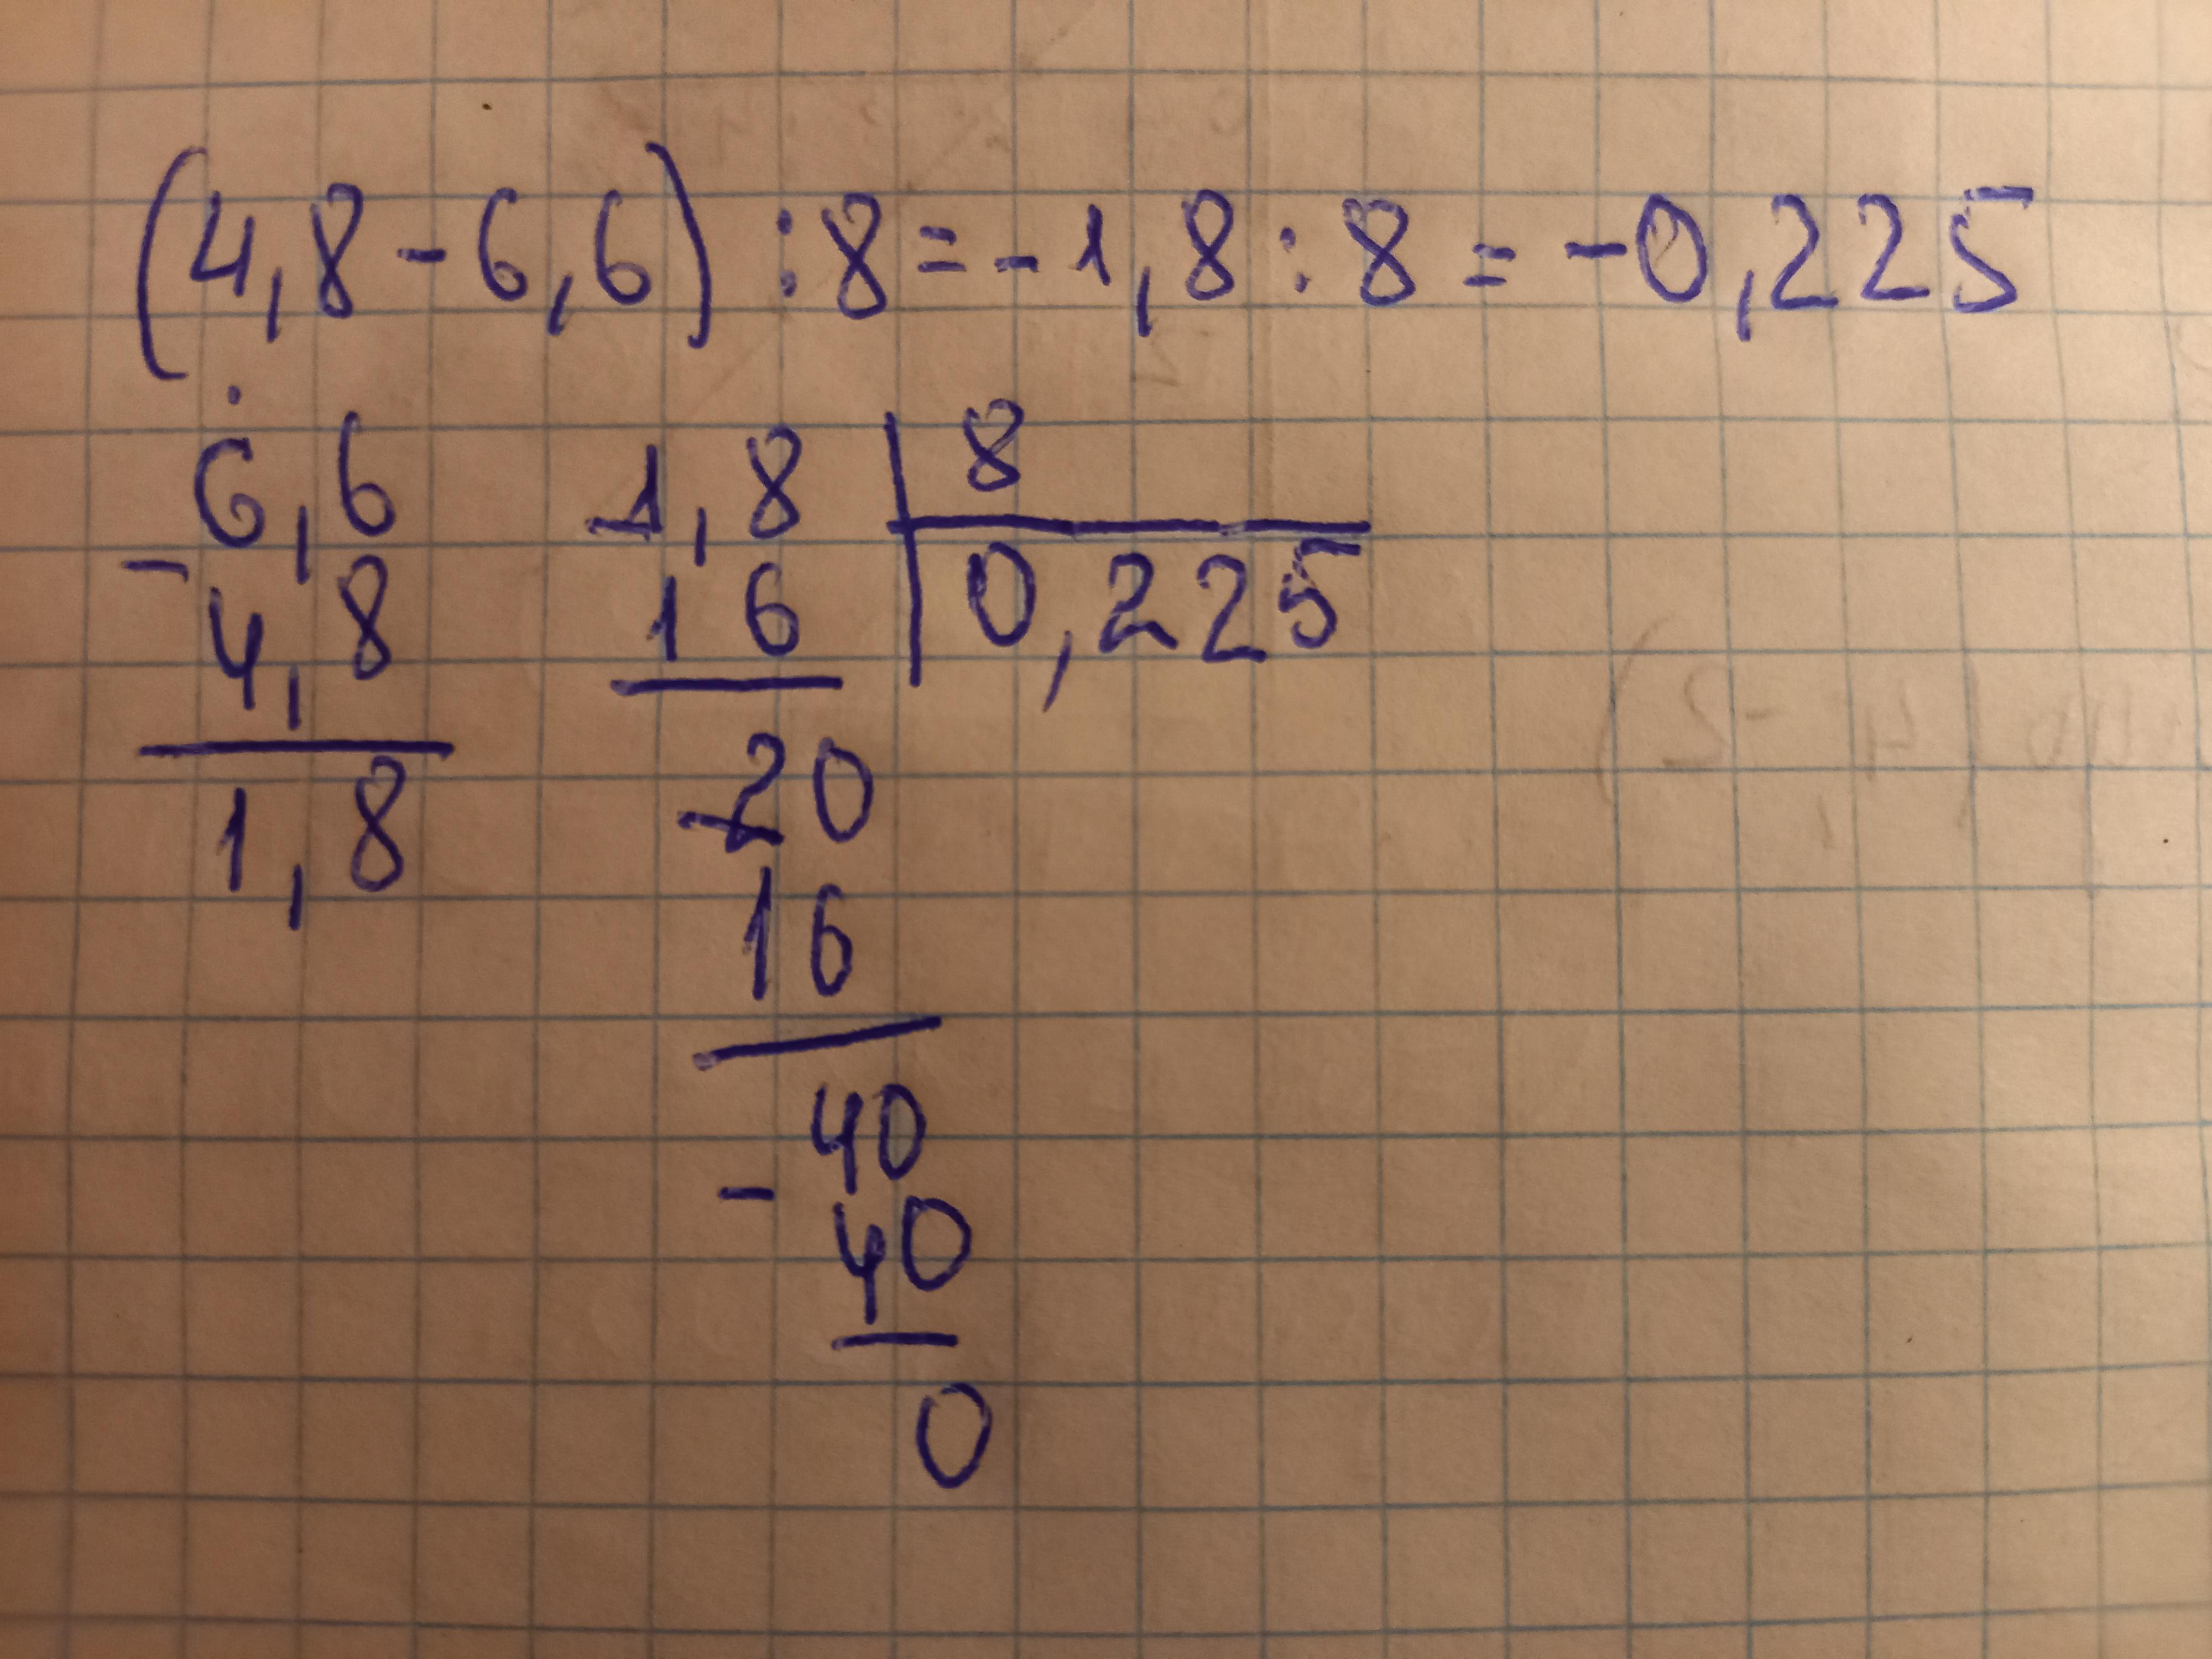 (4,8-6,6) :8=-1,8:8=-0,225
6,6 1,8 8
- 4,8 - 16 0,225
1,8 - 20
16
- 40
40
0